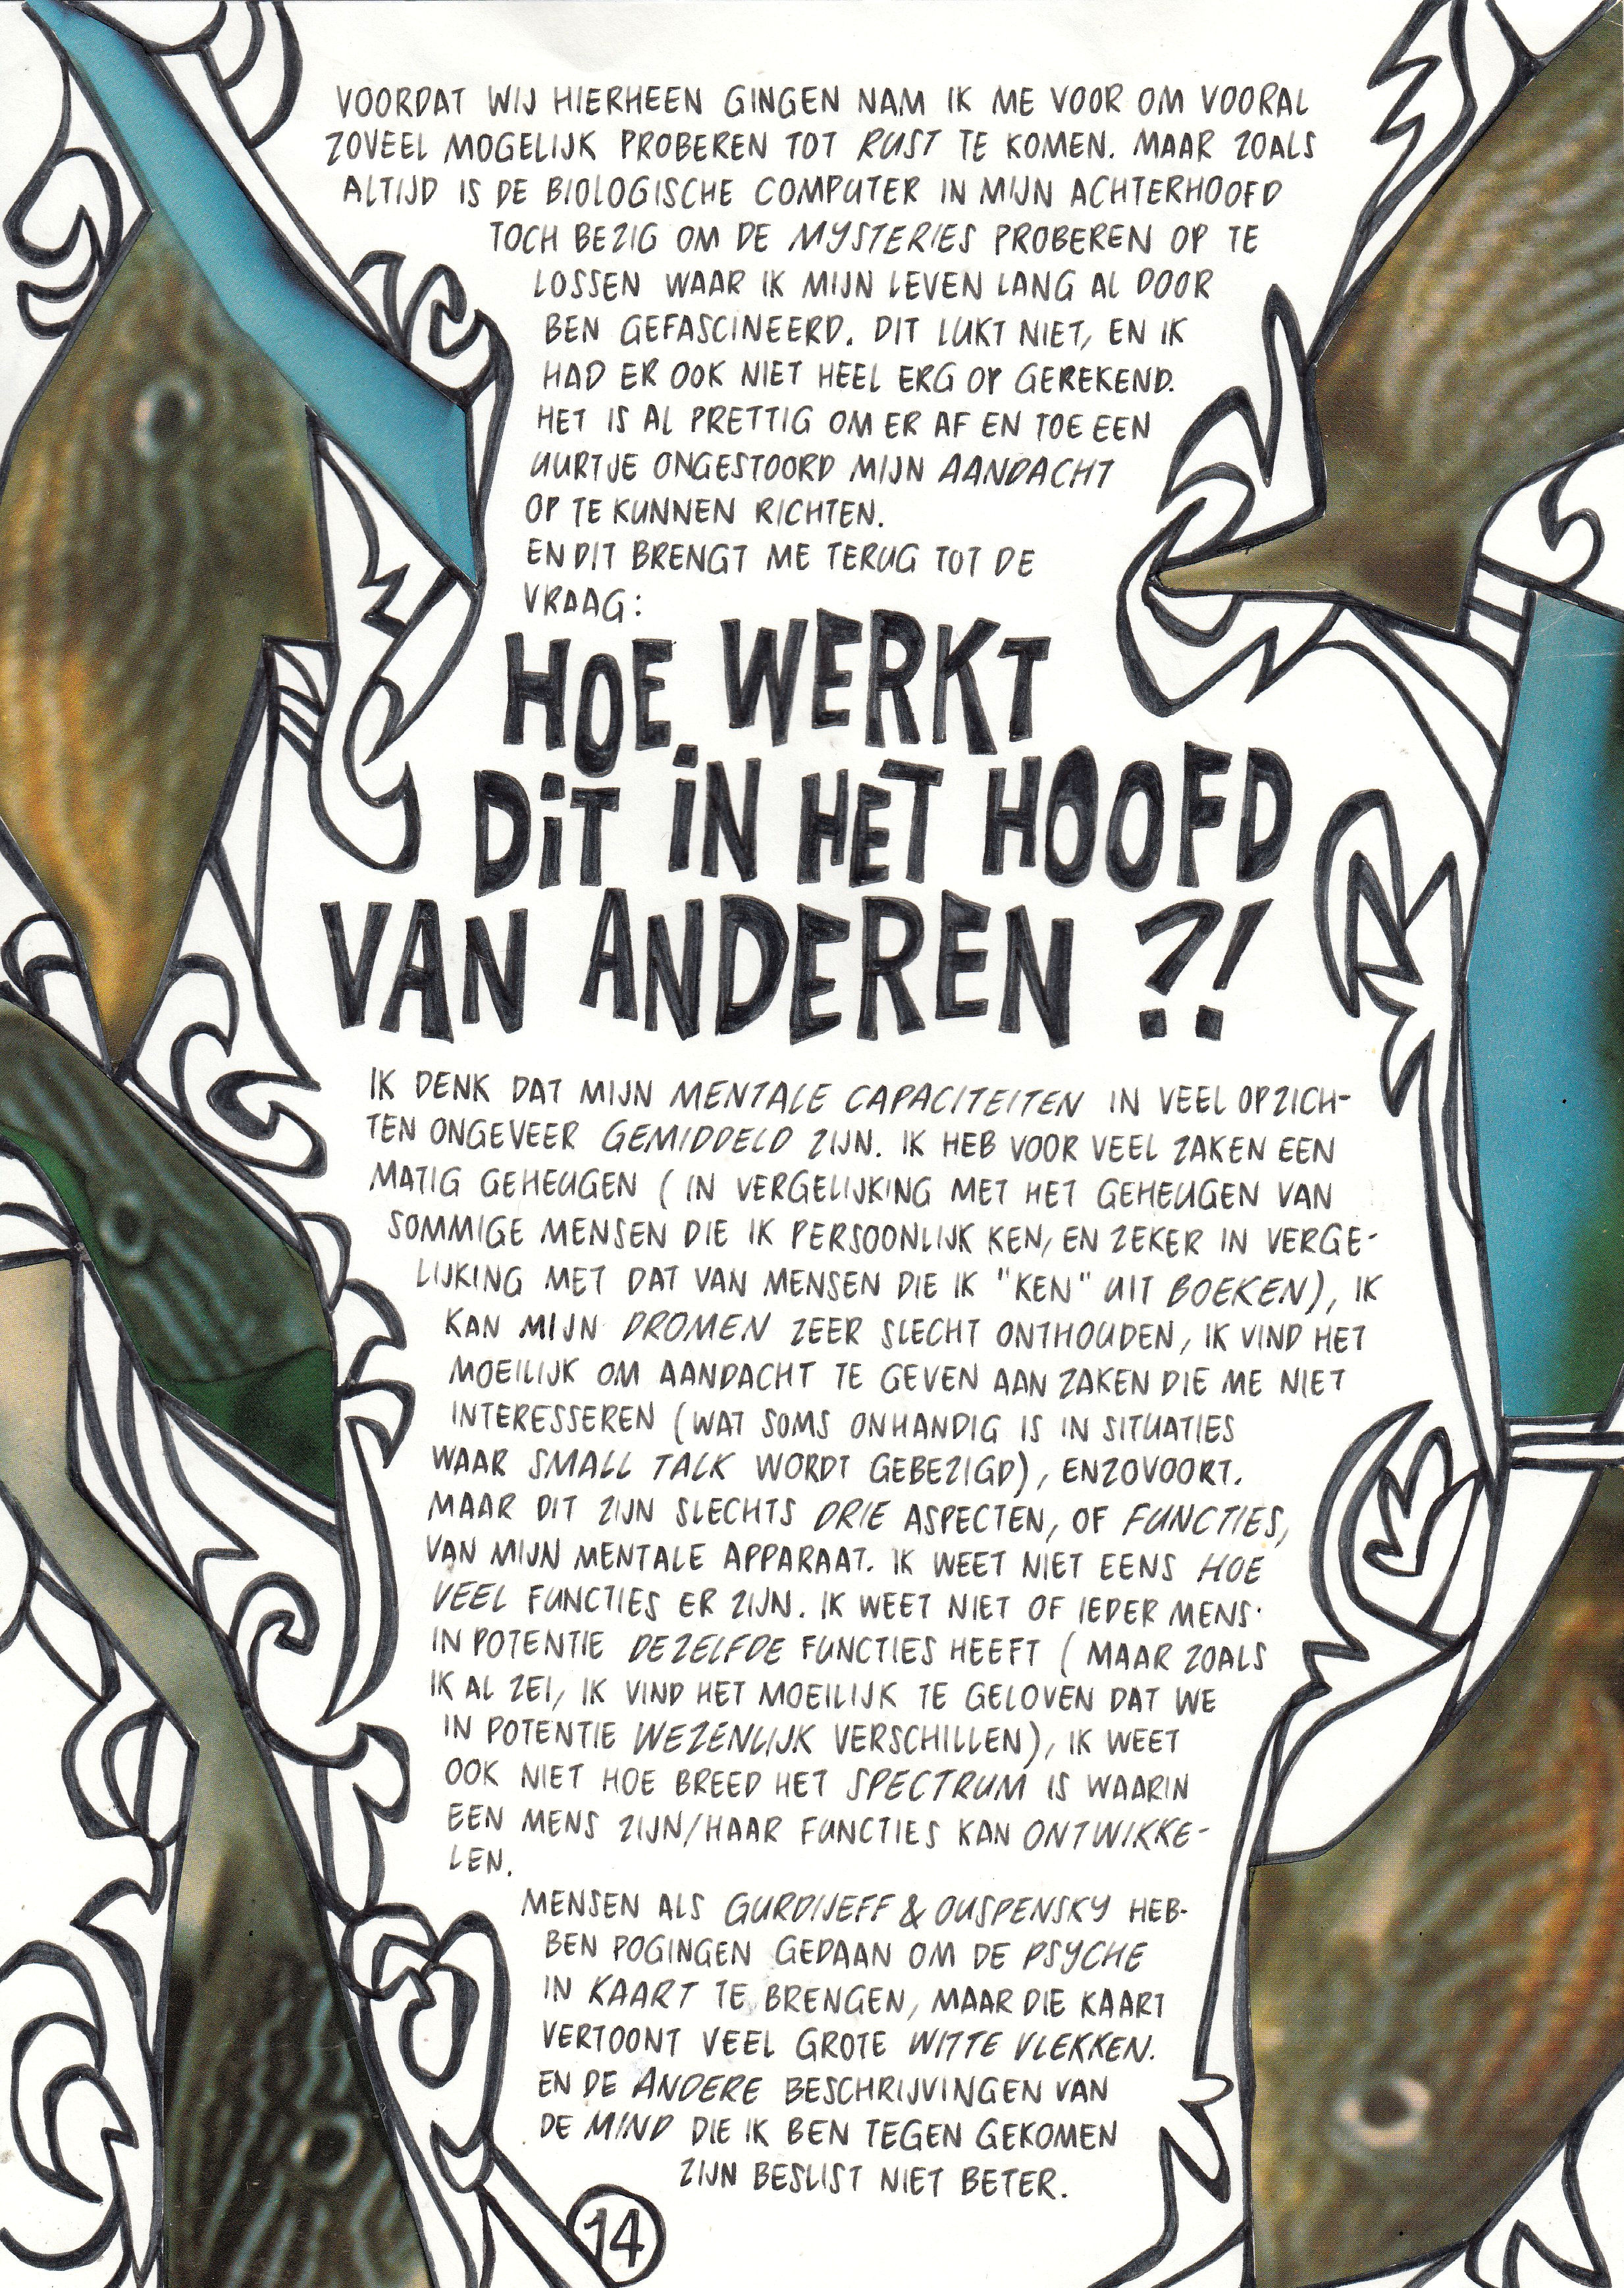 VOORDAT WIJ HIERHEEN GINGEN NAM IK ME VOOR OM VOORAL
ZOVEEL MOGELIJK PROBEREN TOT RUST TE KOMEN. MAAR ZOALS
ALTIJD IS DE BIOLOGISCHE COMPUTER IN MIJN ACHTERHOOFD
TOCH BEZIG OM DE MYSTERIES PROBEREN OP TE
LOSSEN WAAR IK MIJN LEVEN LANG AL DOOR
BEN GEFASCINEERD. DIT LUKT NIET, EN IK
HAD ER OOK NIET HEEL ERG OP GEREKEND.
HET IS AL PRETTIG OM ER AF EN TOE EEN
UURTJE ONGESTOORD MIJN AANDACHT
OP TE KUNNEN RICHTEN.
EN DIT BRENGT ME TERUG TOT DE
VRAAG:
HOE WERKT
DiT iN HET HOOFD
VAN ANDEREN ?!
IK DENK DAT MIJN MENTALE CAPACITEITEN IN VEEL OPZICH-
TEN ONGEVEER GEMIDDELD ZIJN. IK HEB VOOR VEEL ZAKEN EEN
MATIG GEHEUGEN (IN VERGELIJKING MET HET GEHEUGEN VAN
SOMMIGE MENSEN DIE IK PERSOONLIJK KEN, EN ZEKER IN VERGE-
LIJKING MET DAT VAN MENSEN DIE IK "KEN" UIT BOEKEN), IK
KAN MIJN DROMEN ZEER SLECHT ONTHOUDEN, IK VIND HET
MOEILIJK OM AANDACHT TE GEVEN AAN ZAKEN DIE ME NIET
INTERESSEREN (WAT SOMS ONHANDIG IS IN SITUATIES
WAAR SMALL TALK WORDT GEBEZIGD), ENZOVOORT.
MAAR DIT ZIJN SLECHTS DRIE ASPECTEN, OF FUNCTIES,
VAN MIJN MENTALE APPARAAT. IK WEET NIET EENS HOE
VEEL FUNCTIES ER ZIJN. IK WEET NIET OF IEDER MENS
IN POTENTIE DEZELFDE FUNCTIES HEEFT (MAAR ZOALS
IK AL ZEI, IK VIND HET MOEILIJK TE GELOVEN DAT WE
IN POTENTIE WEZENLIJK VERSCHILLEN), IK WEET
OOK NIET HOE BREED HET SPECTRUM IS WAARIN
EEN MENS ZIJN/HAAR FUNCTIES KAN ONTWIKKE-
LEN.
MENSEN ALS GURDIJEFF & OUSPENSKY HEB-
BEN POGINGEN GEDAAN OM DE PSYCHE
IN KAART TE BRENGEN, MAAR DIE KAART
VERTOONT VEEL GROTE WITTE VLEKKEN.
EN DE ANDERE BESCHRIJVINGEN VAN
DE MIND DIE IK BEN TEGEN GEKOMEN
ZIJN BESLIST NIET BETER.
14